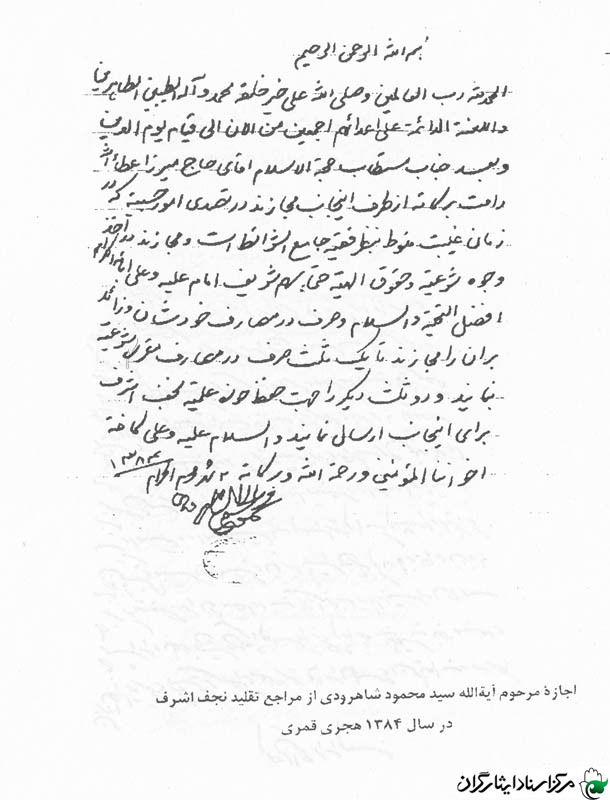 بسم الله الرحمن الرحیم
الحمد لله رب العالمین و صلی الله علی خیر خلقه محمد و آله الطیبین الطاهرین
و اللعنة الدائمة علی اعدائهم اجمعین من الان الی قیام یوم الدین
و بعد جناب مستطاب حجة الاسلام اقای حاج میرزا عطاء الله
دامت برکاته از طرف اینجانب مجازند در تصدی امور حسبیه که در
زمان غیبت منوط بنظر فقیه جامع الشرائط است و مجازند در اخذ
وجوه شرعیة و حقوق الهیة حتی سهم شریف امام علیه و علی ابائه الکرام
افضل التحیة و السلام و صرف در مصارف خودشان و زائد
بران را مجازند تا یک ثلث صرف در مصارف مقرره شرعیة
نمایند و دو ثلث دیگر را جهت حفظ حوزه علمیة نجف اشرف
برای اینجانب ارسال نمایند و السلام علیه و علی کافة
اخواننا المؤمنین و رحمة الله و برکاته ۲ شهر محرم الحرام ۱۳۸۴
اجازهٔ مرحوم آیةالله سید محمود شاهرودی از مراجع تقلید نجف اشرف
در سال ۱۳۸۴ هجری قمری
مرکز اسناد ایثارگران